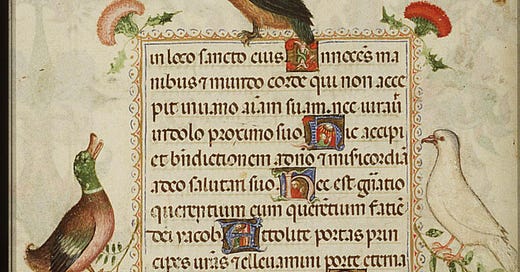 in loco sancto eius Innocēs ma
nibus ⁊ mundo corde qui non acce
pit in uano aīam suam nec iurauit
in dolo proximo suo Hic accipi
et bn̄dictionem a dn̄o ⁊ misericordiā
a deo salutari suo Hec est gn̄atio
querentium eum querētium faciē
dei yacob Attolite portas prin
cipes ur̄as ⁊ eleuamini porte eterna